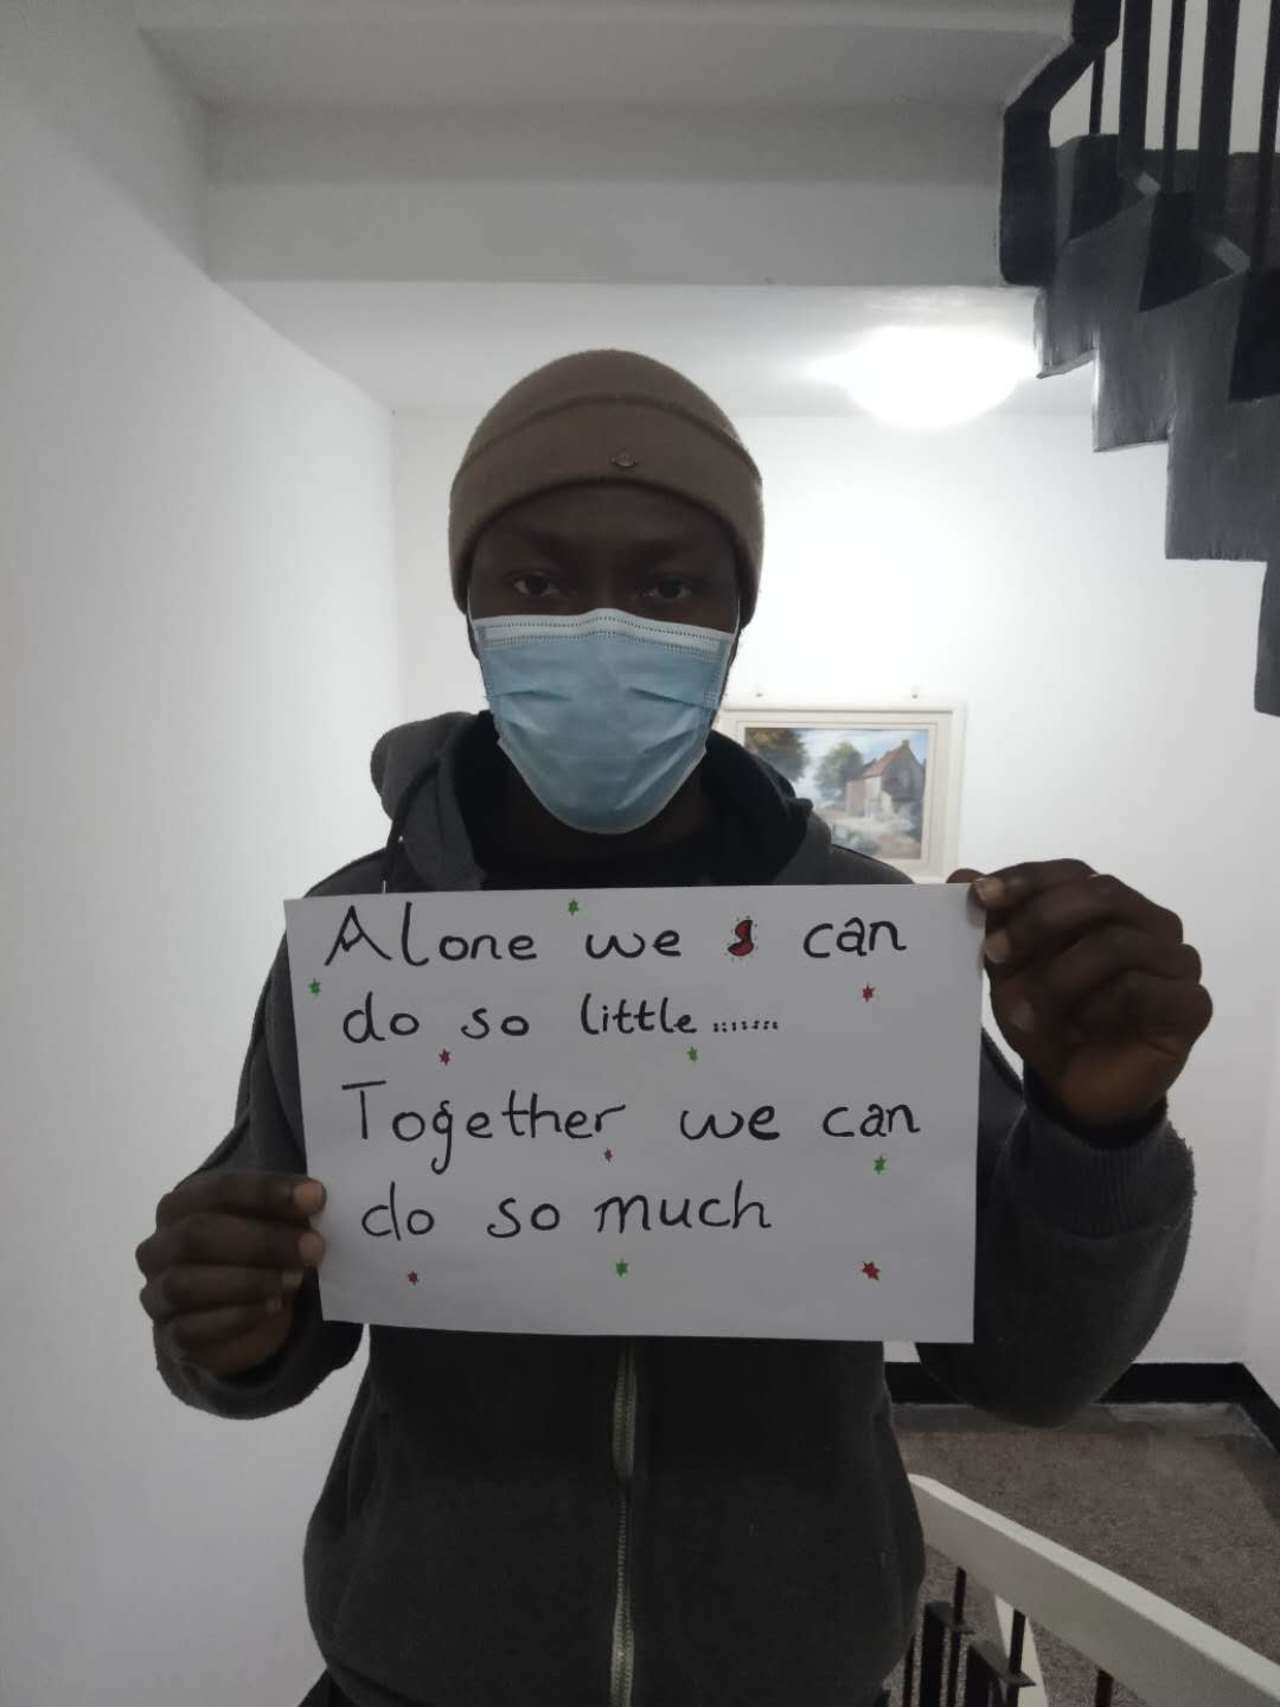 Alone we can
do so little.......
Together we can
do so much